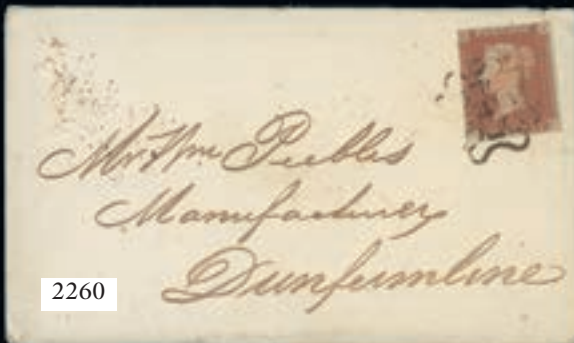 Mr Wm Peebles
Manufacturer
Dunfermline
2260